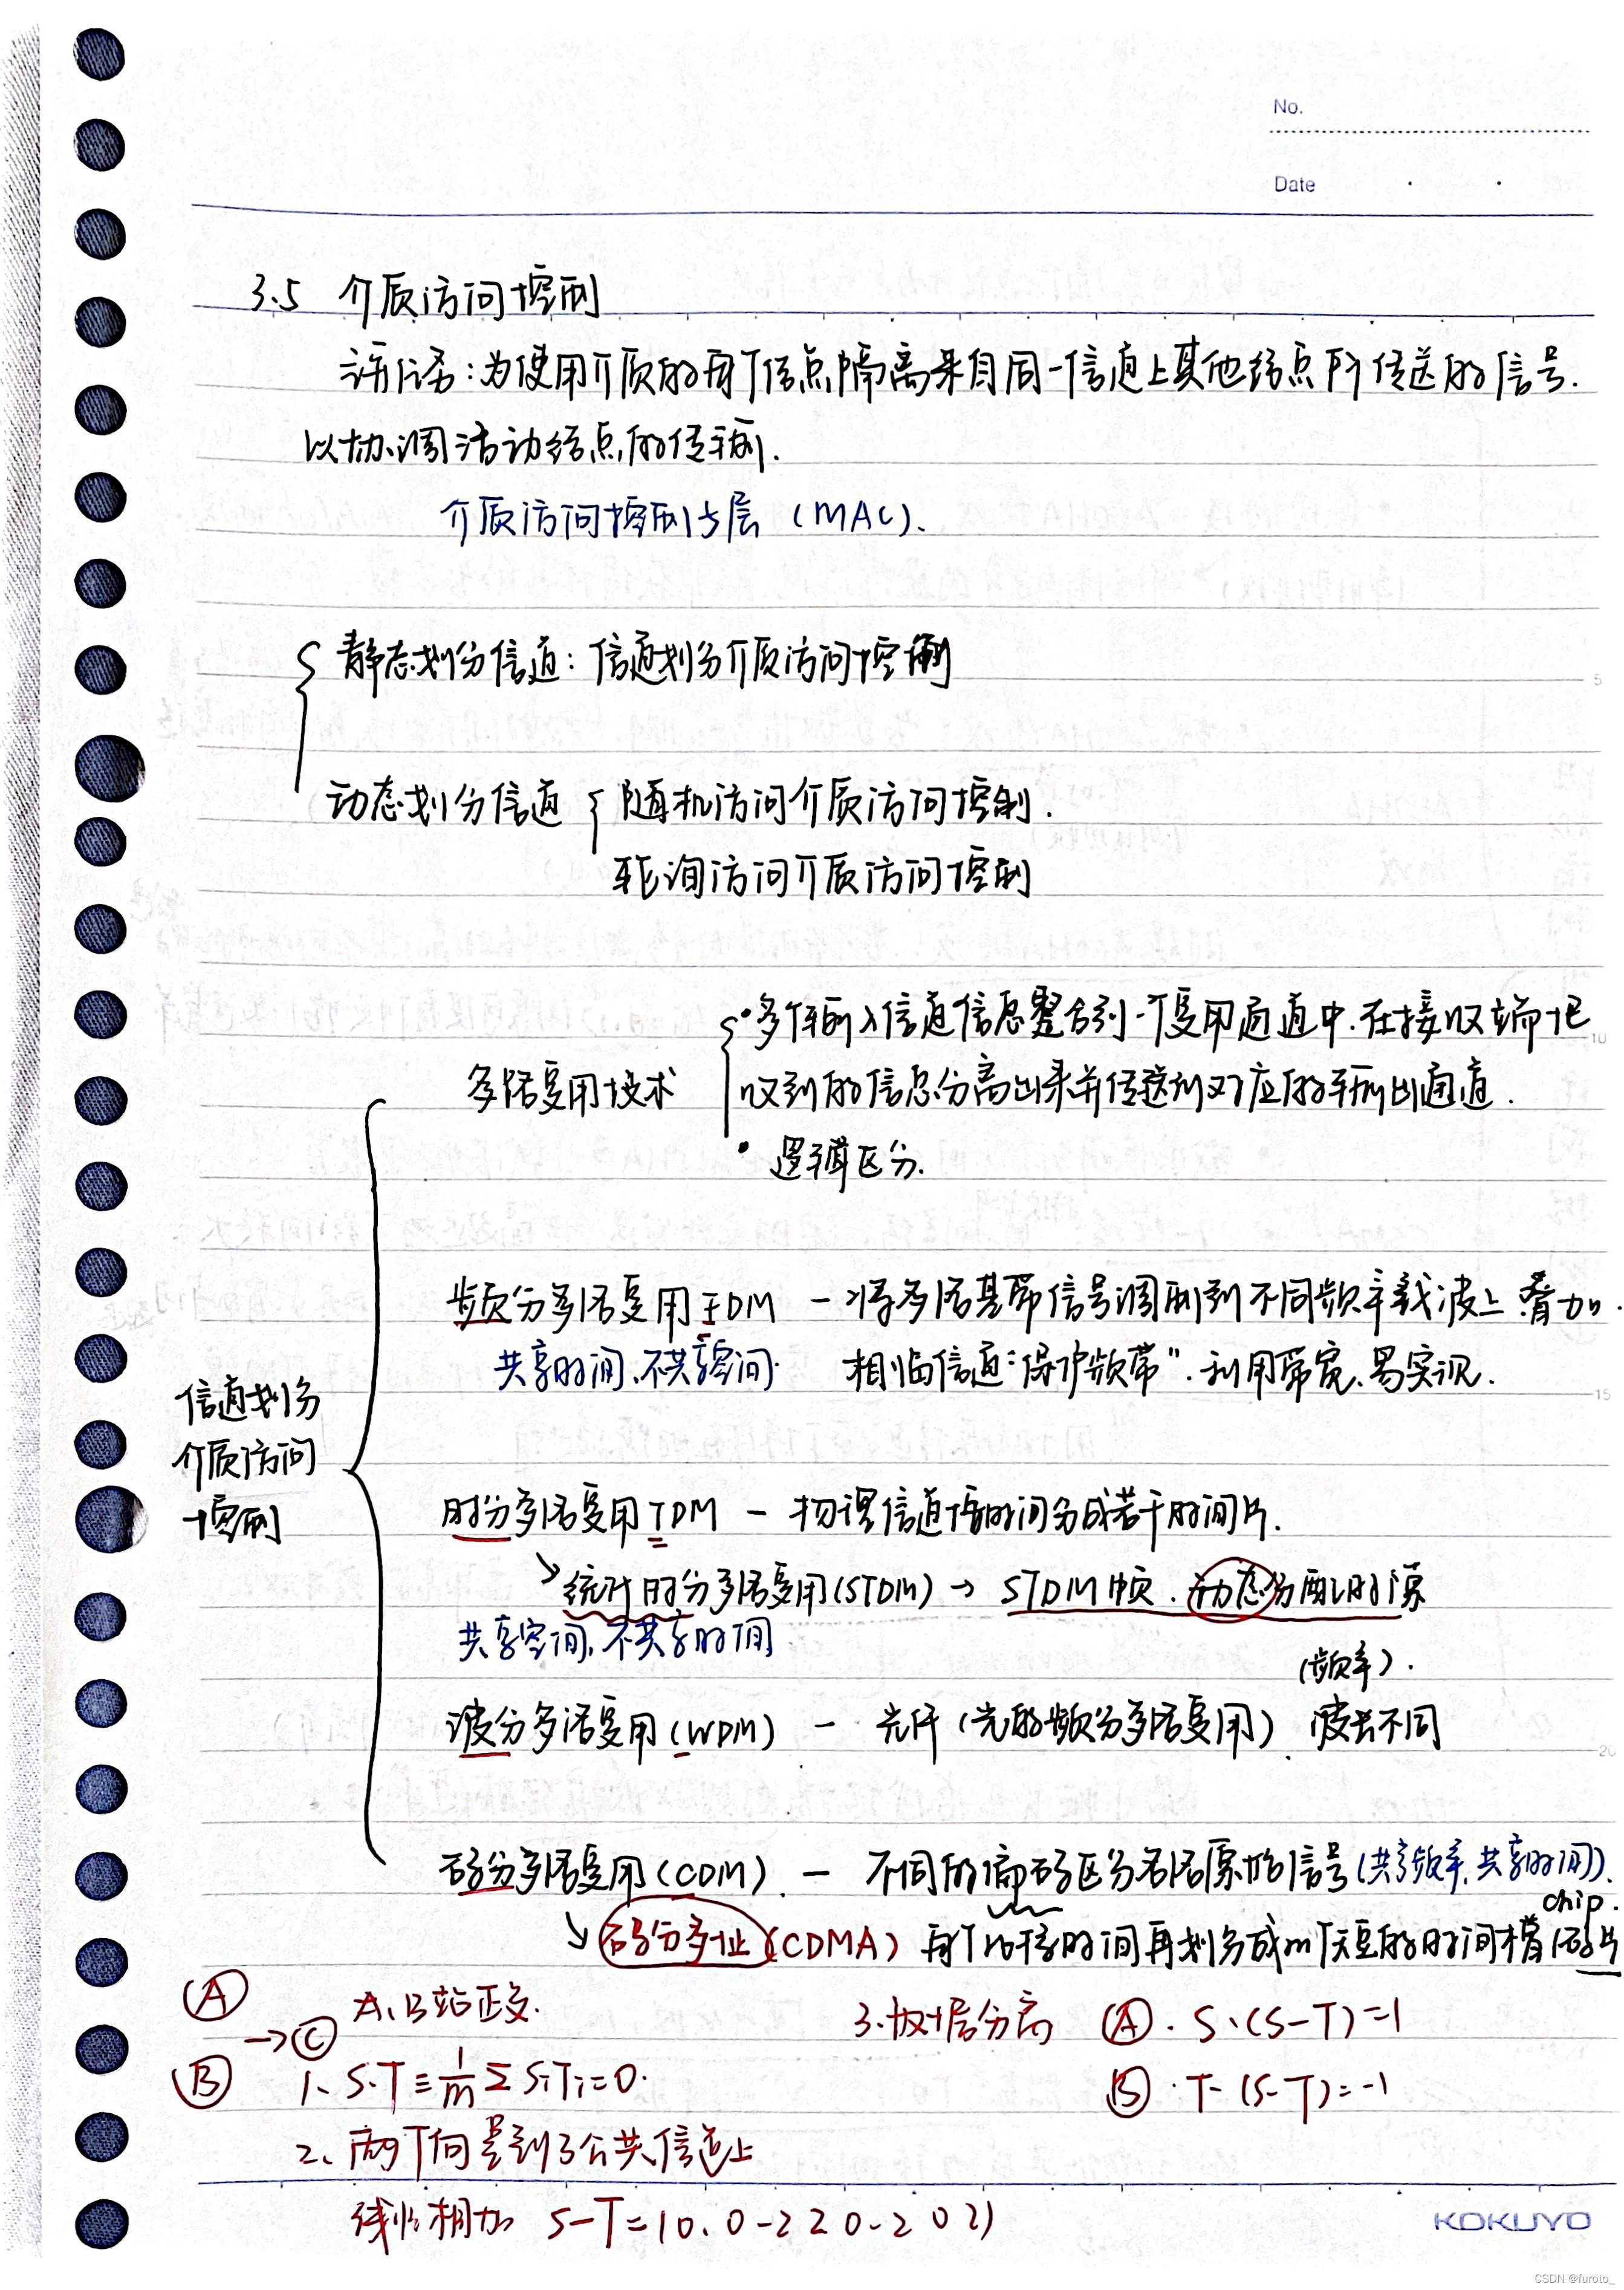 No.
Date
3.5 介质访问控制
任务：为使用介质的每个结点隔离来自同一信道上其他结点所传送的信号.
以协调活动结点的传输.
介质访问控制子层（MAC）.
静态划分信道：信道划分介质访问控制
动态划分信道 { 随机访问介质访问控制.
轮询访问介质访问控制
多路复用技术
•多个输入信道信息整合到一个复用通道中.在接收端把
收到的信息分离出来并传送到对应的输出通道.
• 逻辑区分.
信道划分
介质访问
控制
频分多路复用FDM — 将多路基带信号调制到不同频率载波上叠加.
共享时间、不共享空间. 相临信道“保护频带”.利用带宽、易实现.
时分多路复用TDM — 物理信道按时间分成若干时间片.
↘统计时分多路复用(STDM) → STDM帧.动态分配时隙
共享空间,不共享时间
(频率).
波分多路复用(WDM) — 光纤(光的频分多路复用).波长不同
码分多路复用(CDM). — 不同的编码区分各路原始信号(共享频率,共享时间).
chip.
↘码分多址(CDMA) 每个比特时间再划分成m个短的时间槽 码片
Ⓐ
→Ⓒ
Ⓑ
A、B站正交.
1、S·T≡1/m Σ SiTi=0.
2、两个向量到了公共信道上
线性相加 S-T=(0.0-2 2 0-2 0 2)
3.数据分离 Ⓐ. S·(S-T)=1
Ⓑ.T-(S-T)=-1
5
10
15
20
KOKUYO
CSDN @furoto_